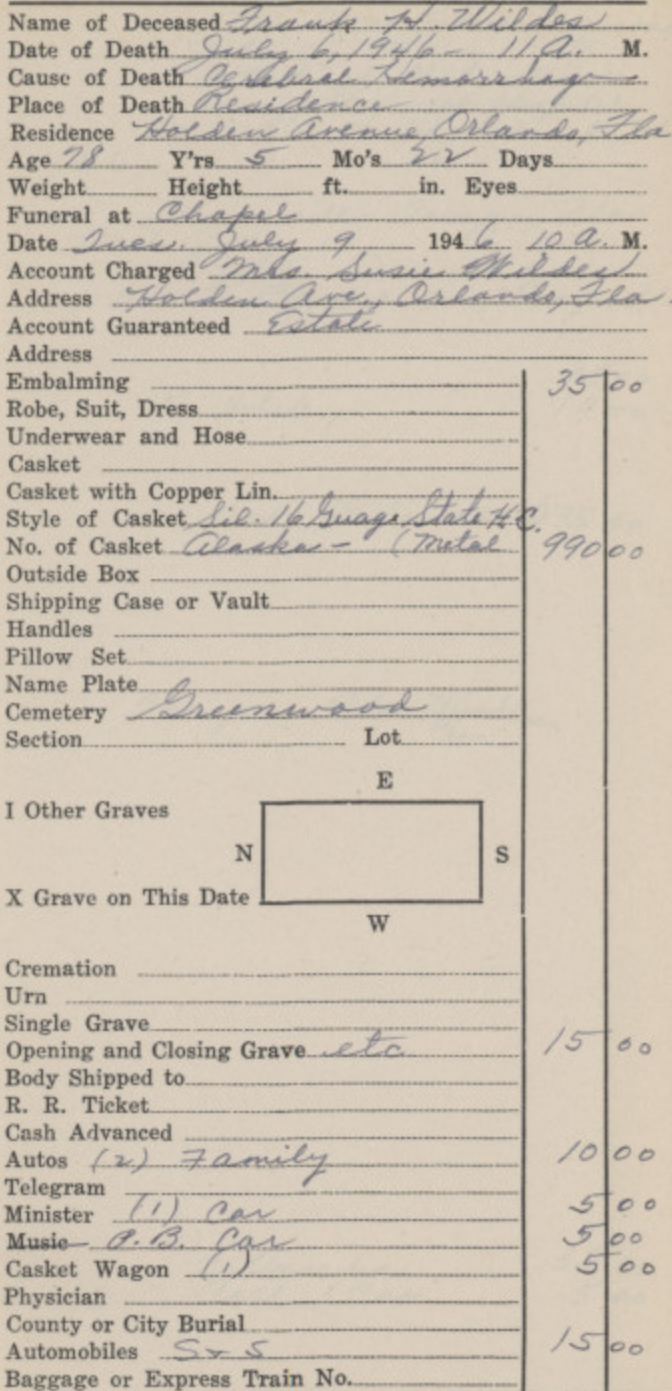 Name of Deceased Frank H. Wildes
Date of Death July 6, 1946 - 11 A. M.
Cause of Death Cerebral Hemorrhage
Place of Death Residence
Residence Holden Avenue, Orlando, Fla
Age 78 Y'rs 5 Mo's 22 Days
Weight Height ft. in. Eyes
Funeral at Chapel
Date Tues. July 9 1946 10 A. M.
Account Charged Mrs. Susie Wildes
Address Holden Ave., Orlando, Fla.
Account Guaranteed Estate
Address
Embalming 35 00
Robe, Suit, Dress
Underwear and Hose
Casket
Casket with Copper Lin.
Style of Casket Sil. 16 Guage State H.C.
No. of Casket Alaska - (Metal 990 00
Outside Box
Shipping Case or Vault
Handles
Pillow Set
Name Plate
Cemetery Greenwood
Section Lot
E
I Other Graves
N S
X Grave on This Date
W
Cremation
Urn
Single Grave
Opening and Closing Grave etc 15 00
Body Shipped to
R. R. Ticket
Cash Advanced
Autos (2) Family 10 00
Telegram
Minister (1) Car 5 00
Music P.B. Car 5 00
Casket Wagon (1) 5 00
Physician
County or City Burial
Automobiles S & S 15 00
Baggage or Express Train No.